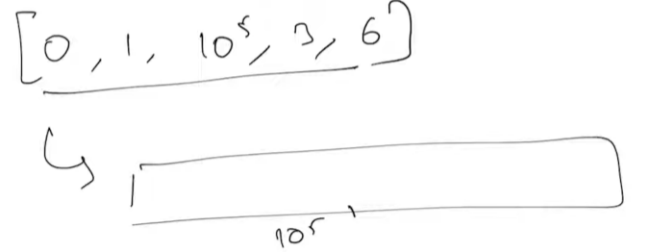 [0, 1, 10⁵, 3, 6]
10⁵